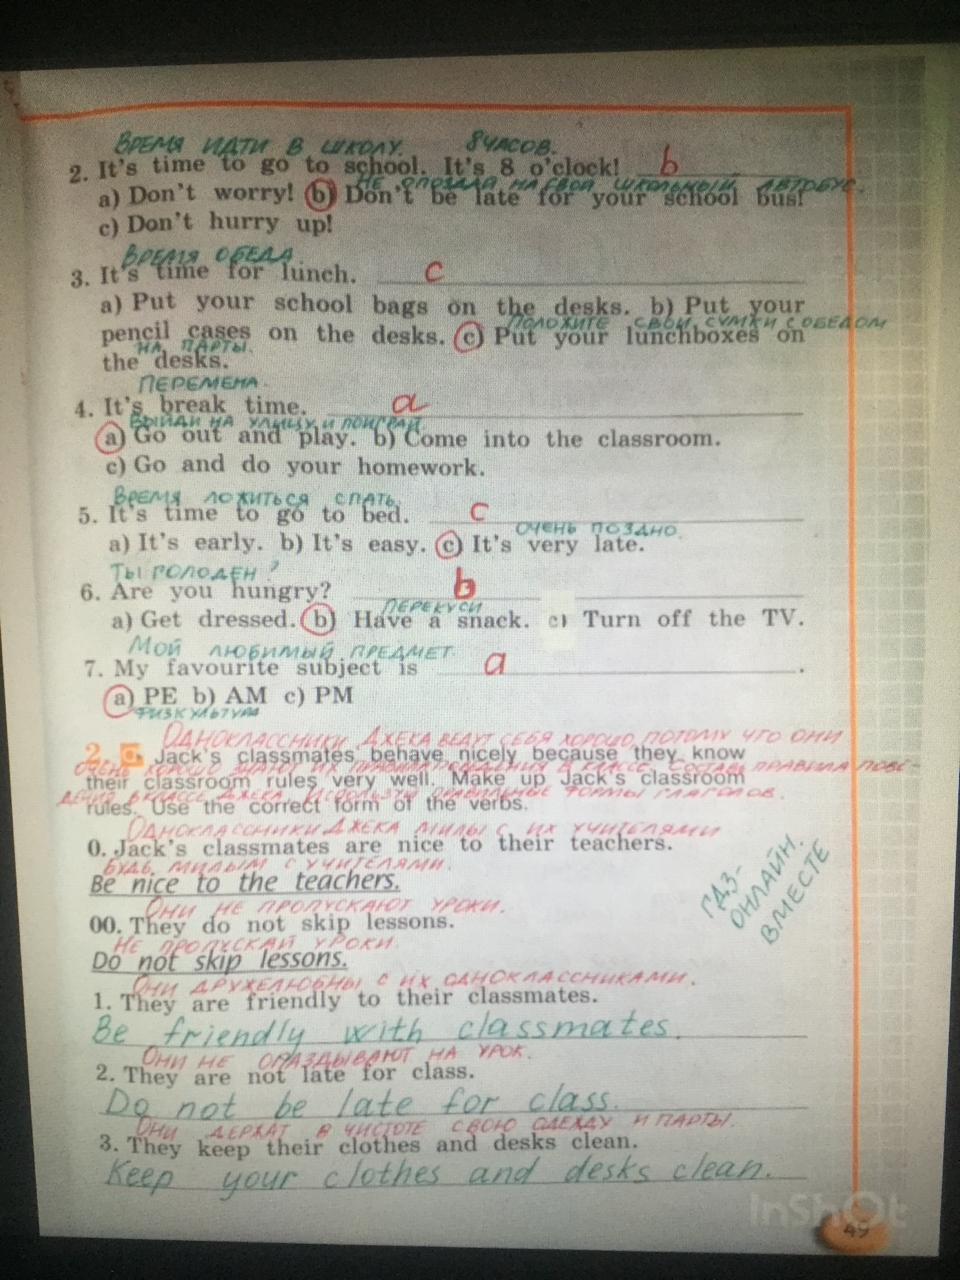 ВРЕМЯ ИДТИ В ШКОЛУ. 8 ЧАСОВ.
2. It's time to go to school. It's 8 o'clock! b
НЕ ОПОЗДАЙ НА СВОЙ ШКОЛЬНЫЙ АВТОБУС.
a) Don't worry! b) Don't be late for your school bus!
c) Don't hurry up!
ВРЕМЯ ОБЕДА.
3. It's time for lunch. c
a) Put your school bags on the desks. b) Put your
ПОЛОЖИТЕ СВОИ СУМКИ С ОБЕДОМ
pencil cases on the desks. c) Put your lunchboxes on
НА ПАРТЫ.
the desks.
ПЕРЕМЕНА.
4. It's break time. a
ВЫЙДИ НА УЛИЦУ И ПОИГРАЙ.
a) Go out and play. b) Come into the classroom.
c) Go and do your homework.
ВРЕМЯ ЛОЖИТЬСЯ СПАТЬ.
5. It's time to go to bed. c
ОЧЕНЬ ПОЗДНО.
a) It's early. b) It's easy. c) It's very late.
ТЫ ГОЛОДЕН?
6. Are you hungry? b
ПЕРЕКУСИ
a) Get dressed. b) Have a snack. c) Turn off the TV.
МОЙ ЛЮБИМЫЙ ПРЕДМЕТ.
7. My favourite subject is a.
a) PE b) AM c) PM
ФИЗКУЛЬТУРА
ОДНОКЛАССНИКИ ДЖЕКА ВЕДУТ СЕБЯ ХОРОШО, ПОТОМУ ЧТО ОНИ
2. Jack's classmates behave nicely because they know
ОЧЕНЬ ХОРОШО ЗНАЮТ ИХ ПРАВИЛА ПОВЕДЕНИЯ В КЛАССЕ. СОСТАВЬ ПРАВИЛА ПОВЕ-
their classroom rules very well. Make up Jack's classroom
ДЕНИЯ В КЛАССЕ ДЖЕКА. ИСПОЛЬЗУЙ ПРАВИЛЬНЫЕ ФОРМЫ ГЛАГОЛОВ.
rules. Use the correct form of the verbs.
ОДНОКЛАССНИКИ ДЖЕКА МИЛЫ С ИХ УЧИТЕЛЯМИ
0. Jack's classmates are nice to their teachers.
БУДЬ МИЛЫМ С УЧИТЕЛЯМИ.
Be nice to the teachers.
ОНИ НЕ ПРОПУСКАЮТ УРОКИ.
00. They do not skip lessons.
НЕ ПРОПУСКАЙ УРОКИ.
Do not skip lessons.
ГДЗ-
ОНЛАЙН.
ВМЕСТЕ
ОНИ ДРУЖЕЛЮБНЫ С ИХ ОДНОКЛАССНИКАМИ.
1. They are friendly to their classmates.
Be friendly with classmates.
ОНИ НЕ ОПАЗДЫВАЮТ НА УРОК.
2. They are not late for class.
Do not be late for class.
ОНИ ДЕРЖАТ В ЧИСТОТЕ СВОЮ ОДЕЖДУ И ПАРТЫ.
3. They keep their clothes and desks clean.
Keep your clothes and desks clean.
InShOt
49